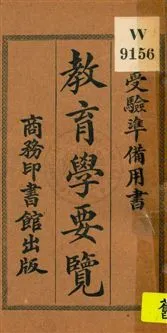 W
9156
受驗準備用書
教育學要覽
商務印書館出版